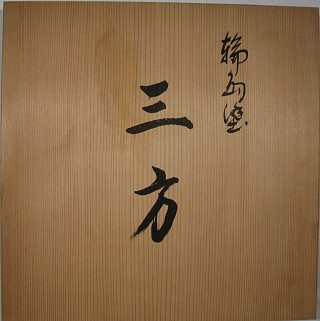 輪島塗
三方